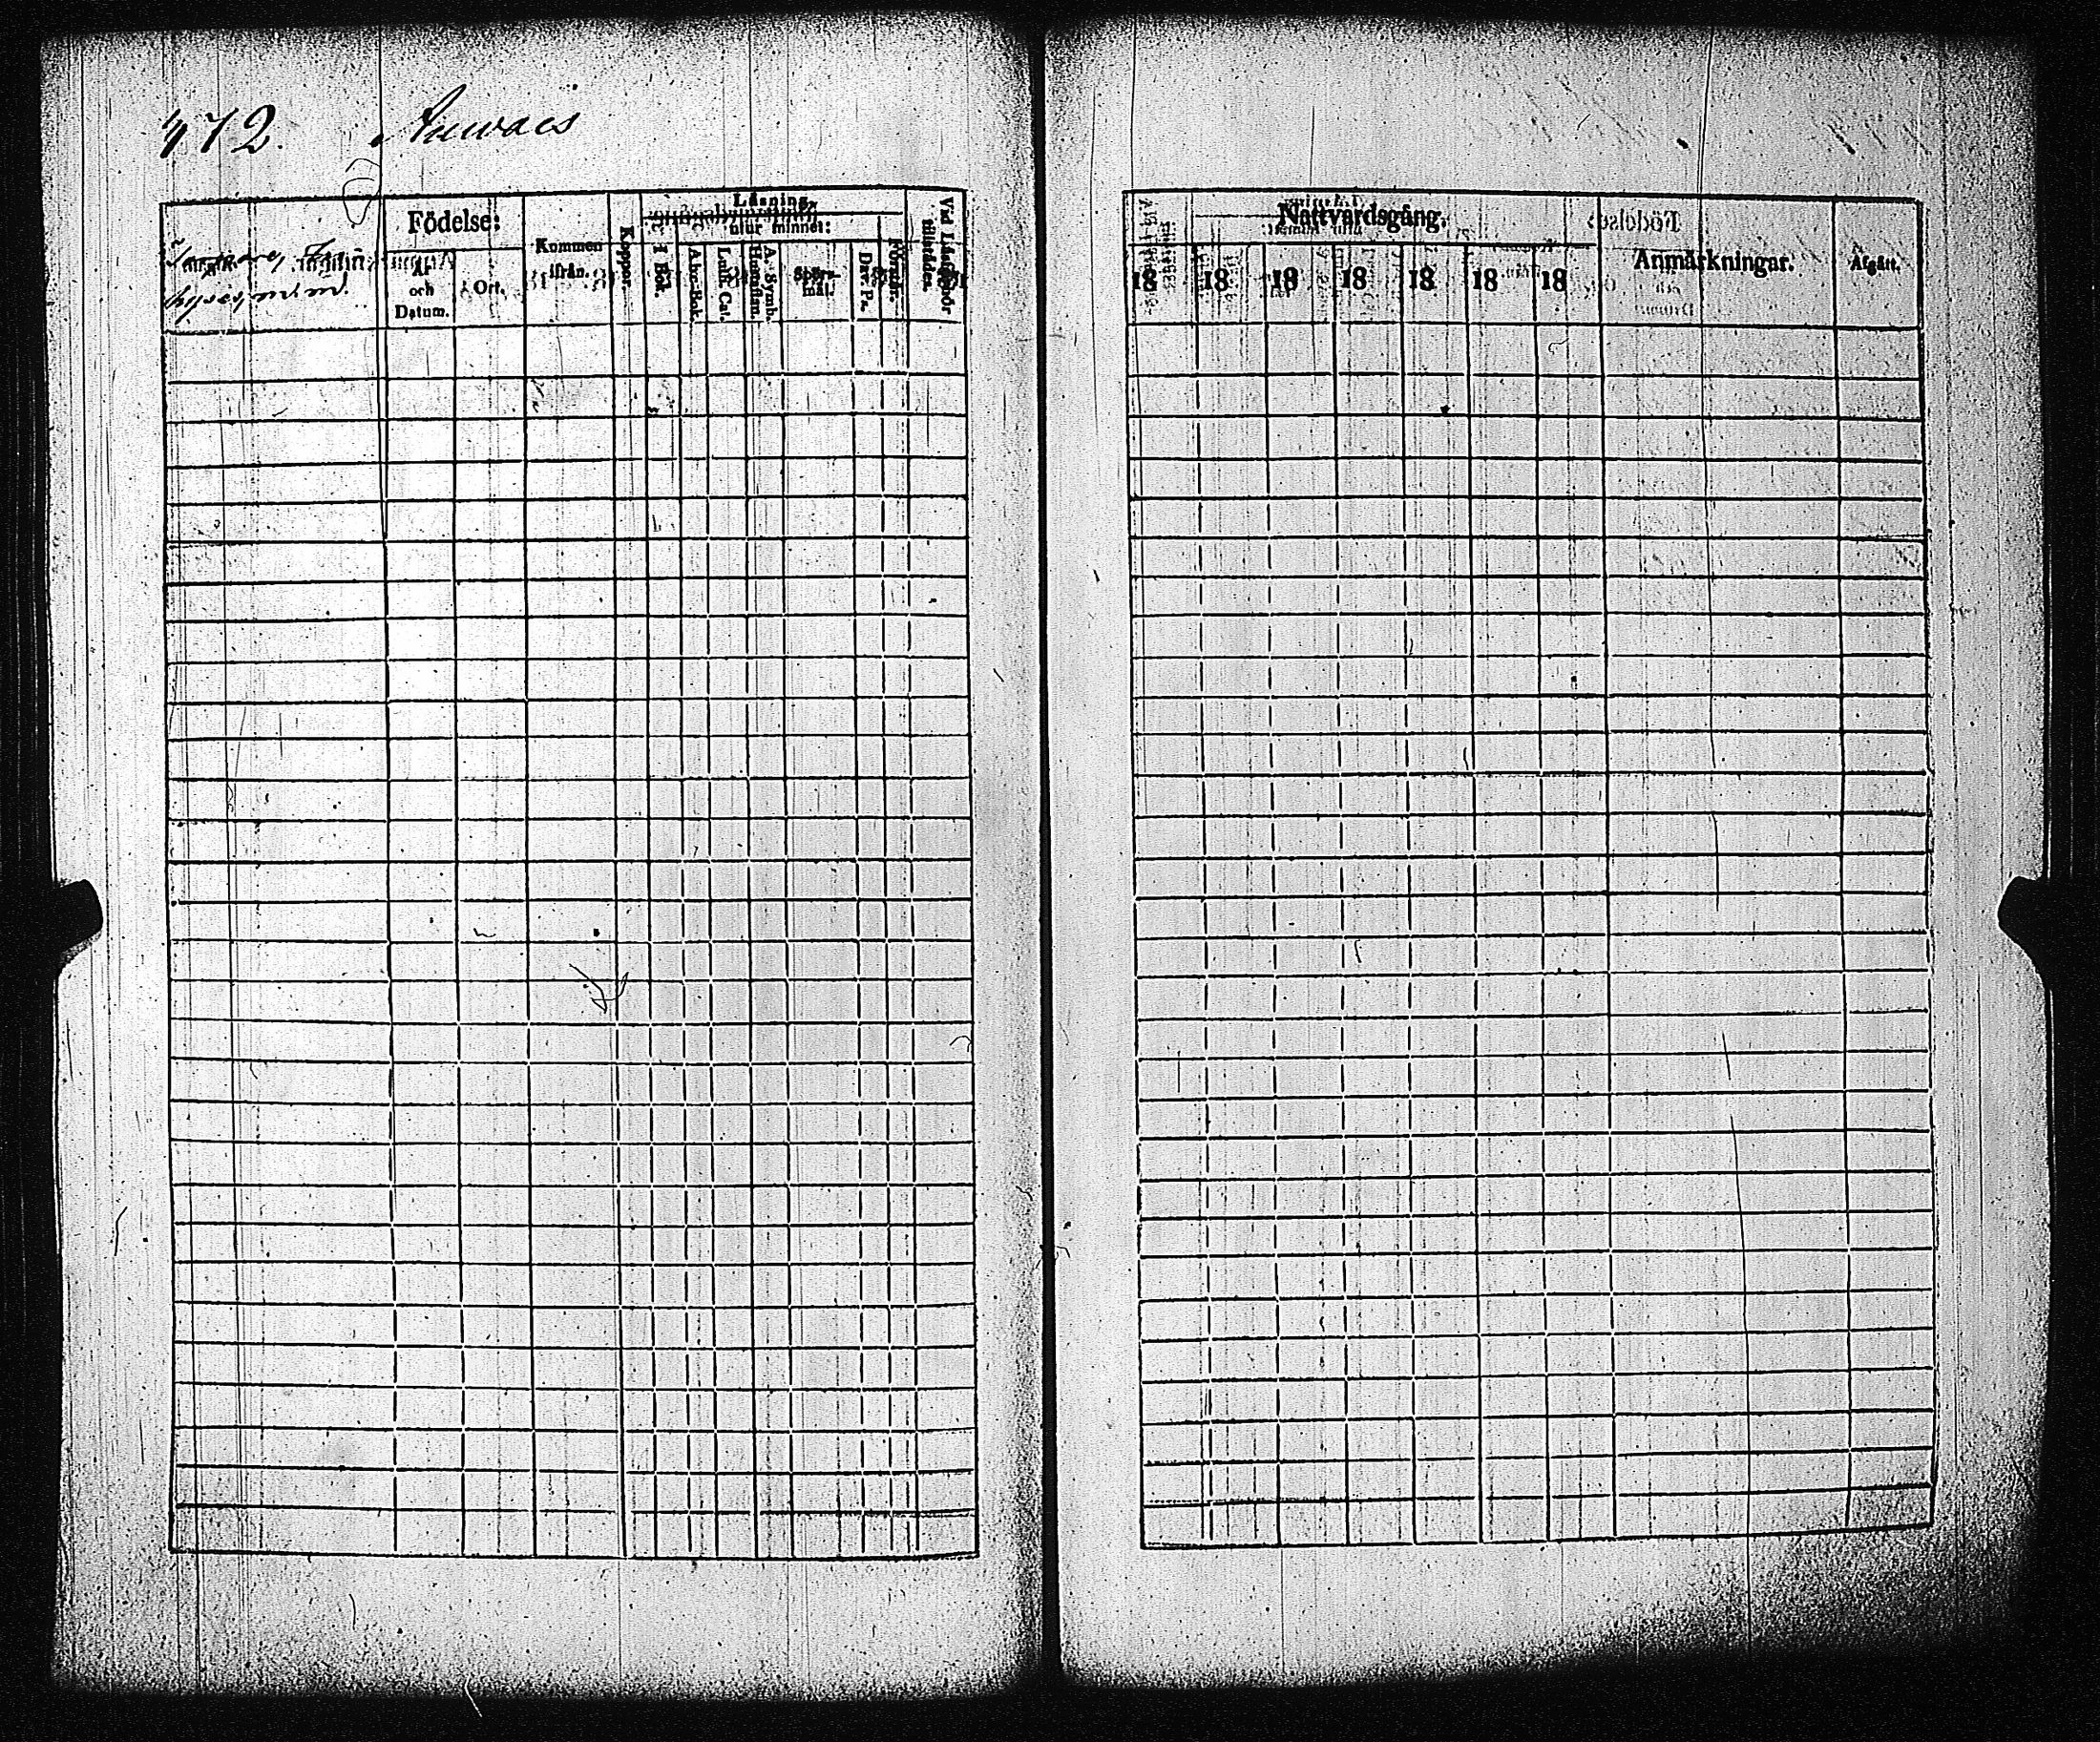 472.
Födelse:
År och Datum.
Ort.
Kommen ifrån.
Koppor.
Läsning,
utur minnet:
I Bok.
Abc-Bok.
Luth. Cat.
A. Symb.
Spörs-mål.
Dav. Ps.
Förstår.
Vid Läsförhör tillstädes.
Nattvardsgång.
18 18 18 18 18 18 18
Anmärkningar.
Afgått.